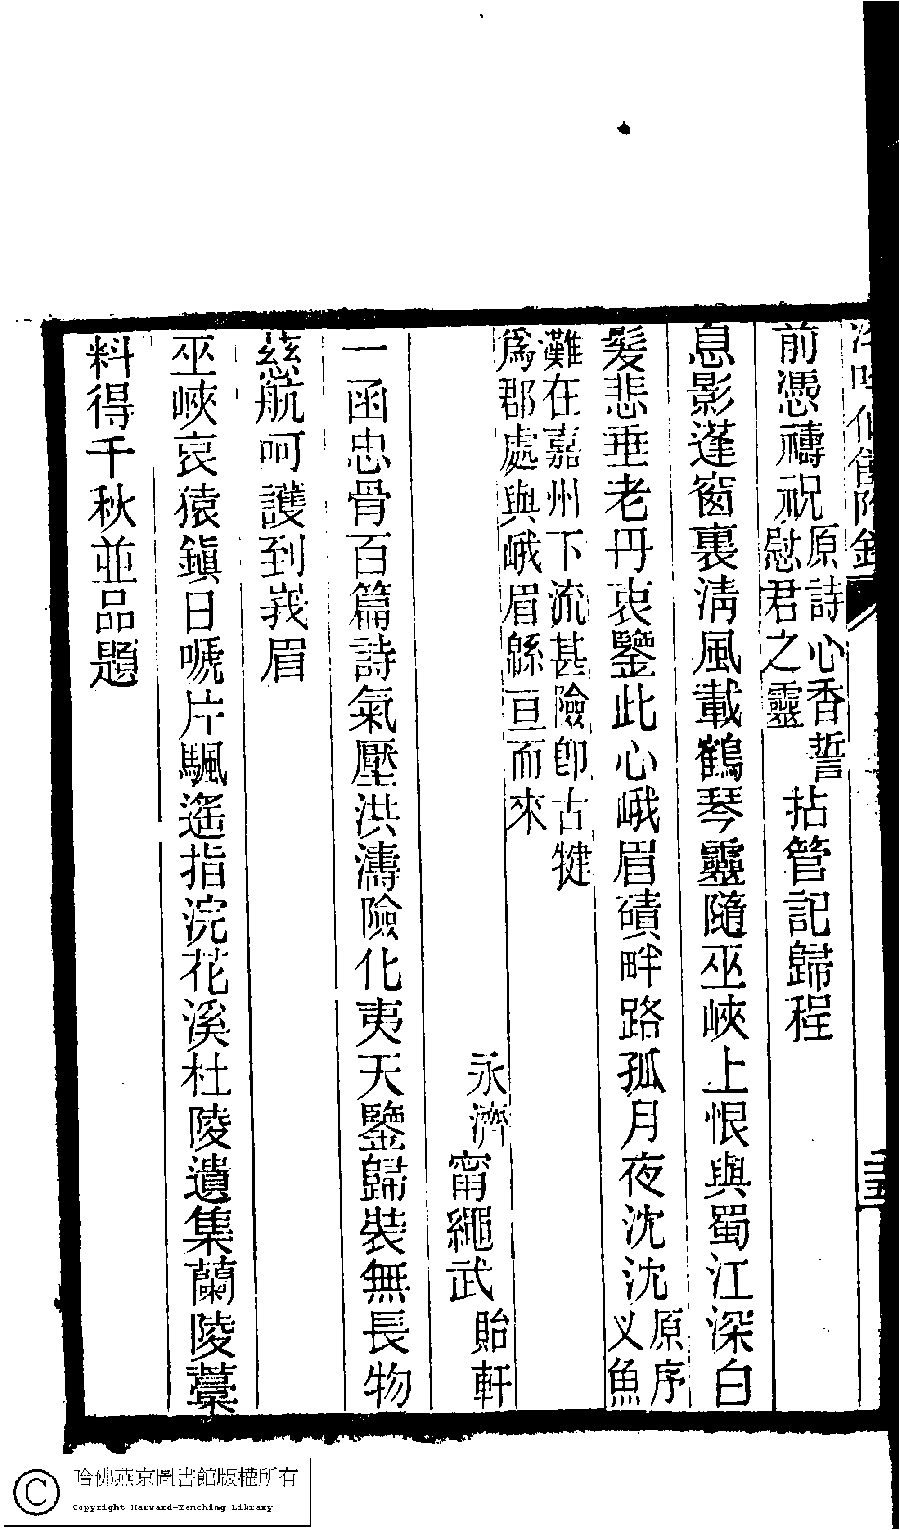 前憑禱祝原詩心香誓慰君之靈拈管記歸程
息影蓬窗裏淸風載鶴琴靈隨巫峽上恨與蜀江深白
髮悲垂老丹衷鑒此心峨眉磧畔路孤月夜沈沈原序义魚
灘在嘉州下流甚險卽古犍
爲郡處與峨眉緜亘而來
永濟甯繩武貽軒
一函忠骨百篇詩氣壓洪濤險化夷天鑒歸裝無長物
慈航呵護到峩眉
巫峽哀猿鎭日嗁片颿遙指浣花溪杜陵遺集蘭陵藁
料得千秋並品題
哈佛燕京圖書館版權所有
Copyright Harvard-Yenching Library